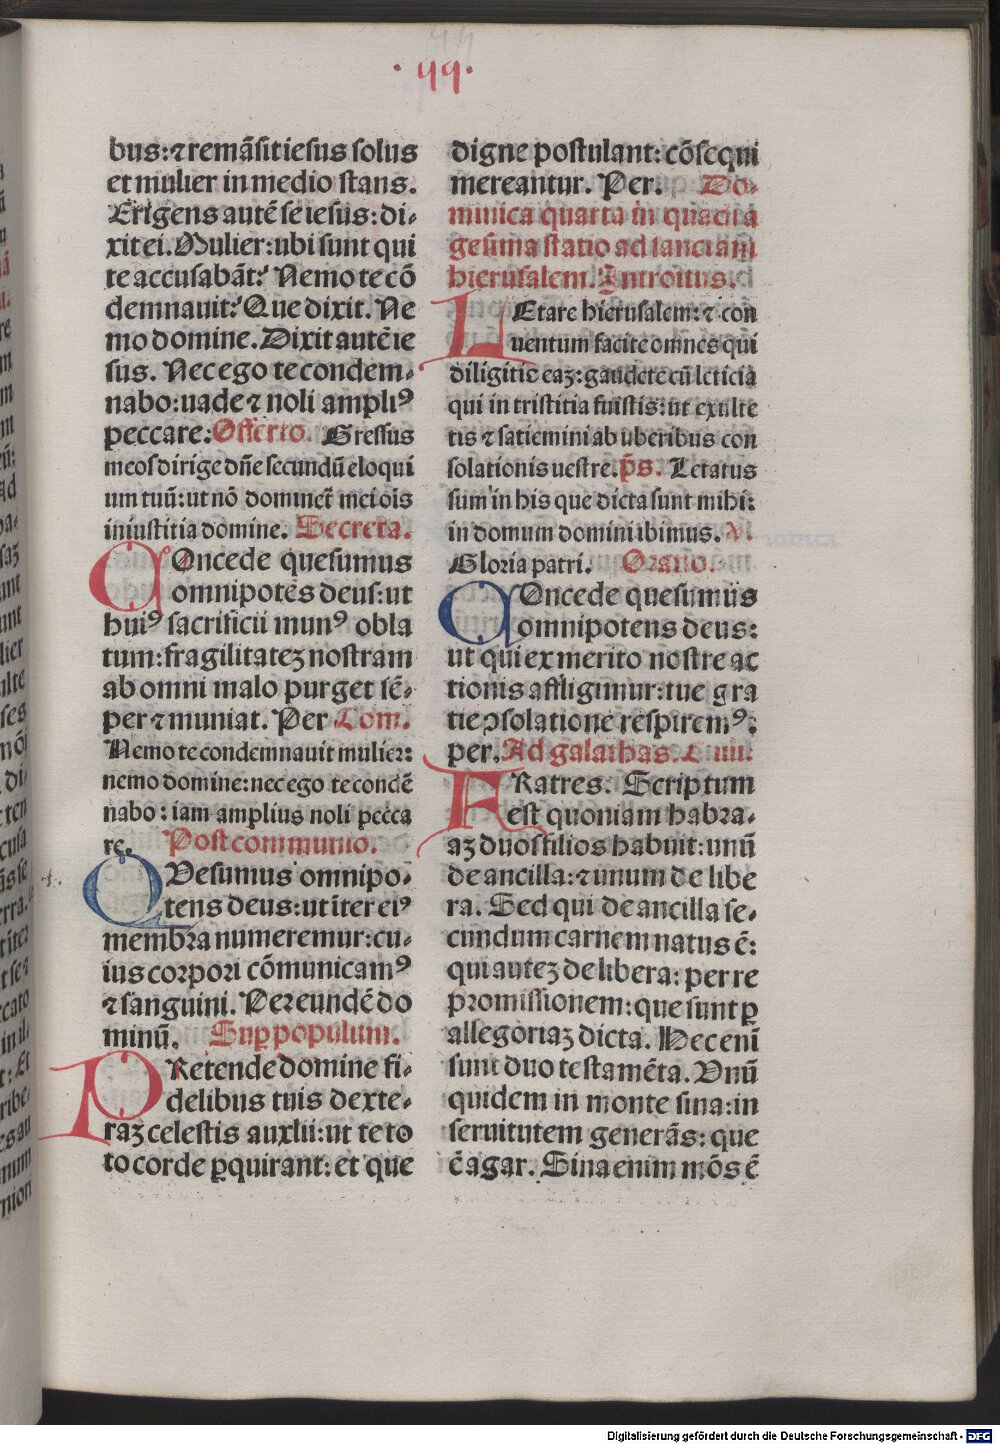 · 44 ·
bus: ⁊ remãsit iesus solus
et mulier in medio stans.
Erigens autẽ se iesus: di-
xit ei. Mulier: ubi sunt qui
te accusabãt? Nemo te cõ
demnauit? Que dixit. Ne
mo domine. Dixit autẽ ie
sus. Nec ego te condem-
nabo: uade ⁊ noli ampliꝰ
peccare: Offerto. Gressus
meos dirige dñe secundũ eloqui
um tuũ: ut nõ dominet̃ mei ois
iniustitia domine. Secreta.
COncede quesumus
omnipotẽs deus: ut
huiꝰ sacrificii munꝰ obla
tum: fragilitateꝫ nostram
ab omni malo purget sẽ-
per ⁊ muniat. Per Com.
Nemo te condemnauit mulier:
nemo domine: nec ego te condẽ
nabo: iam amplius noli pecca
re. Post communio.
QVesumus omnipo-
tens deus: ut iter eiꝰ
membra numeremur: cu-
ius corpori cõmunicamꝰ
⁊ sanguini. Per eundẽ do
minũ. Suꝑ populum.
PRetende domine fi-
delibus tuis dexte-
raꝫ celestis auxlii: ut te to
to corde ꝑquirant: et que
digne postulant: cõsequi
mereantur. Per. Do-
minica quarta in quadra
gesima statio ad sanctam
hierusalem. Introitus.
LEtare hierusalem: ⁊ con
uentum facite omnes qui
diligitis eaꝫ: gaudete cũ leticia
qui in tristitia fuistis: ut exulte
tis ⁊ satiemini ab uberibus con
solationis uestre. p̃s. Letatus
sum in his que dicta sunt mihi:
in domum domini ibimus. V.
Gloria patri. Oratio.
COncede quesumus
omnipotens deus:
ut qui ex merito nostre ac
tionis affligimur: tue gra
tie ꝯsolatione respiremꝰ:
per. Ad galathas. C iiii.
FRatres. Scriptum
est quoniam habra-
aꝫ duos filios habuit: unũ
de ancilla: ⁊ unum de libe
ra. Sed qui de ancilla se-
cundum carnem natus ẽ:
qui auteꝫ de libera: per re
promissionem: que sunt ꝑ
allegoriaꝫ dicta. Hec enĩ
sunt duo testamẽta. Vnũ
quidem in monte sina: in
seruitutem generãs: que
ẽ agar. Sina enim mõs ẽ
Digitalisierung gefördert durch die Deutsche Forschungsgemeinschaft - DFG